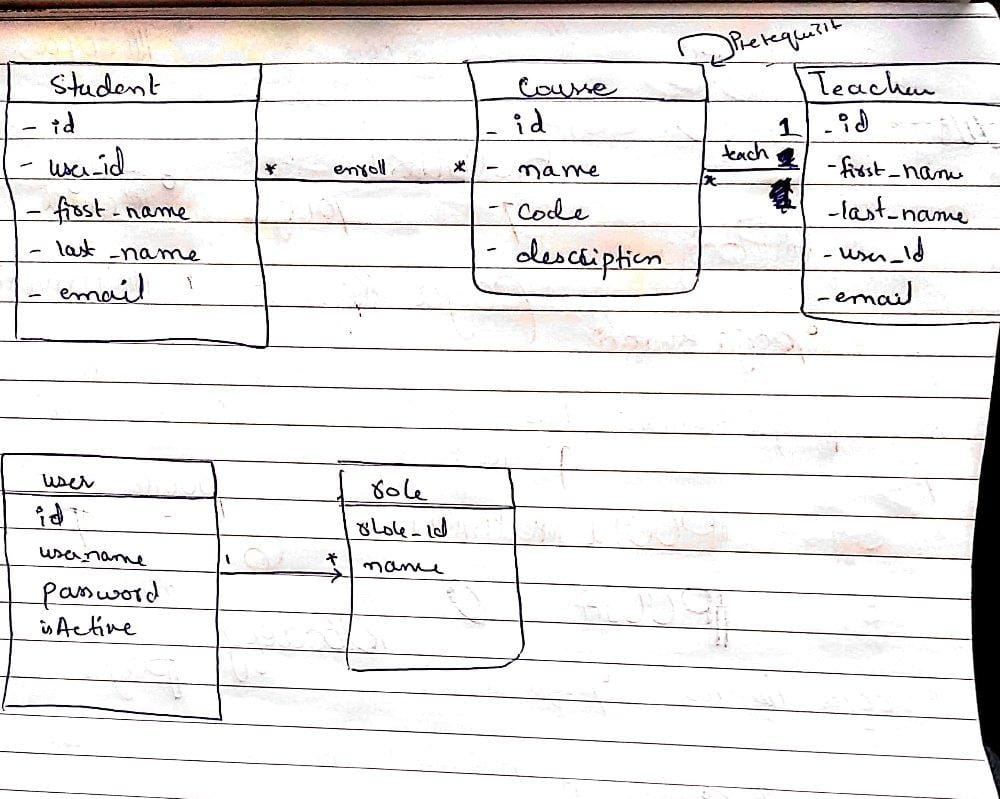 Prerequisit
Student
- id
- user_id
- first_name
- last_name
- email
* enroll *
Course
- id
- name
- Code
- description
1
teach
*
Teacher
- id
- first_name
- last_name
- user_Id
- email
user
id
username
password
isActive
1 *
role
name